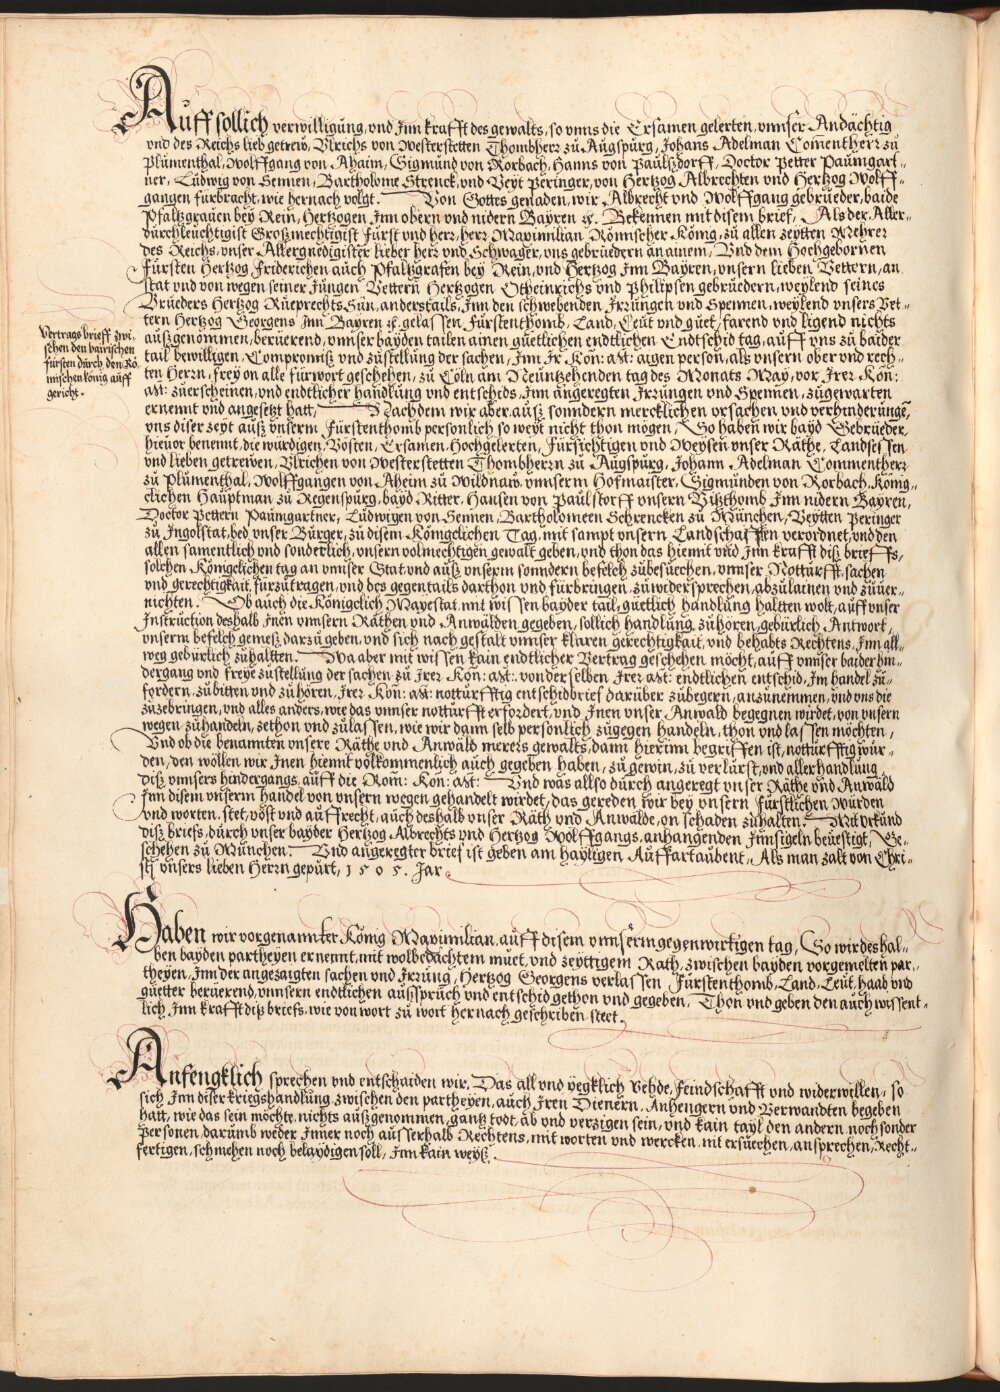 Auff sollich verwilligung, und Inn krafft des gewalts, so unns die Ersamen gelerten, unnser Andächtig
und des Reichs lieb getrew, Ulrichs von Westerstetten Thombherr zu Augspurg, Johans Adelman Comentherr zu
Plümenthal, Wolffgang von Ahaim, Sigmund von Rorbach, Hanns von Paulszdorff, Doctor Petter Paumgart-
ner, Ludwig von Sennen, Bartholome Strenck, und Veyt Peringer, von Hertzog Albrechten und Hertzog Wolff-
gangen furbracht, wie hernach volgt. Von Gottes genaden, wir Albrecht und Wolffgang gebrueder, baide
Pfaltzgraven bey Rein, Hertzogen Inn obern und nidern Bayren etc. Bekennen mit disem brief, Als der Aller-
durchleuchtigist Großmechtigist Fürst und herr, herr Maximilian Römischer König, zu allen zeytten Mehrer
des Reichs, unser Allergnedigister lieber herr und Schwager, uns gebrüedern an ainem, Und dem Hochgebornen
Fürsten Hertzog Friderichen auch Pfaltzgrafen bey Rein, und Hertzog Inn Bayren, unsern lieben Vettern, an
stat und von wegen seiner Jungen Vettern Hertzogen Ottheinrichs und Philipsen gebrüedern, weylend seines
Brueders Hertzog Rüeprechts Sün, anderstails, Inn den schwebenden Irrungen und Spennen, weylend unsers Vet-
tern Hertzog Georgens Inn Bayren etc. gelassen, Fürstenthomb, Land, Leüt und güet, farend und ligend nichts
außgenommen, berüerend, unnser bayden tailen ainen güetlichen endtlichen Endtschid tag, auff uns zu baider
Vertrags brieff zwi-
schen den bairischen
fürsten durch den Rö-
mischen könig auff
gericht.
tail bewilligen, Compromiß und züstellung der sachen, Inn Ir Kön: Mt: aigen person, als unsern ober und rech-
ten Herrn, frey on alle fürwort geschehen, zu Cöln am Neuntzehenden tag des Monats May, vor Irer Kön:
Mt: zuerscheinen, und endtlicher handlung und entschids, Inn angeregten Irrungen und Spennen, zügewarten
ernennt und angesetzt hatt, Nachdem wir aber, ausz sonndern mercklichen ursachen und verhinderunge,
uns diser zeyt außz unserm Fürstenthomb personlich so weyt nicht thon mögen, So haben wir bayd Gebrüeder,
hievor benennt, die würdigen, Vösten, Ersamen, Hochgelerten, Fürsichtigen und Weysen unser Räthe, Landsessen
und lieben getrewen, Ulrichen von Westerstetten Thombherrn zu Augspurg, Johann Adelman Commentherr
zu Plümenthal, Wolffgangen von Aheim zu Wildnaw, unnserm Hofmaister, Sigmunden von Rorbach, König-
clichen Hauptman zu Regenspurg, bayd Ritter, Hansen von Paulstorff unsern Vitzthomb Inn nidern Bayren,
Doctor Pettern Paumgartner, Ludwigen von Sennen, Bartholomeen Schrencken zu München, Veytten Peringer
zu Ingolstat, bed unser Bürger, zu disem Königclichen Tag, mit sampt unsern Landschafften verordnet, und den
allen samentlich und sonderlich, unsern volmechtigen gewalt geben, und thon das hiemit und Inn krafft diß brieffs,
solchen Königclichen tag an unnser Stat und außz unserm sonndern befelch zübesuchen, unnser Notturfft, sachen
und gerechtigkait, fürzutragen, und des gegentails darthon und fürbringen, zuwidersprechen, abzulainen und züver-
nichten. Ob auch die Königclich Mayestat, mit wissen bayder tail, güetlich handlung haltten wolt, auff unser
Instruction deshalb Inen unnsern Räthen und Anwälden gegeben, sollich handlung zuhören, gebürlich Antwort,
unserm befelch gemeß, darzu geben, und sich nach gestalt unnser klaren gerechtigkait, und behabts Rechtens, Inn all-
weg gebürlich zuhaltten. Wa aber mit wissen kain endtlicher Vertrag geschehen möcht, auff unnser baider hin-
dergang und freye züstellung der sachen zu Irer Kön: Mt: von derselben Irer Mt: endtlichen entschid, Im handel zu-
fordern, zübitten und zu hören, Irer Kön: Mt: notturfftig entschidbrief darüber zübegern, anzunemmen, und uns die
zuzebringen, und alles anders, wie das unnser notturfft erfordert, und Inen unser Anwald begegnen wirdet, von unsern
wegen zühandeln, zethon und zülassen, wie wir dann selb personlich zugegen handeln, thon und lassen möchten,
Und ob die benannten unsere Räthe und Anwäld merers gewalts, dann hierinn begriffen ist, notturfftig wur-
den, den wöllen wir Inen hiemit volkommenlich auch gegeben haben, zu gewin, zu verlurst, und aller handlung
diß unnsers hindergangs, auff die Rom: Kön: Mt: Und was allso durch angeregt unser Räthe und Anwäld
Inn disem unserm handel von unsern wegen gehandelt wirdet, das gereden wir bey unsern Fürstlichen Würden
und worten, stet, vöst und auffrecht, auch deshalb unser Räth und Anwälde, on schaden zuhalten. Mit urkünd
diß briefs, durch unser bayder Hertzog Albrechts und Hertzog Wolffgangs, anhangenden Innsigeln bevestigt, Ge-
schehen zu München. Und angeregter brief ist geben am hayligen Auffartaubent, Als man zalt von Chri-
stj unsers lieben Herrn gepurt, 1505. Jar.
Haben wir vorgenannter König Maximilian, auff disem unnserm gegenwirtigen tag, So wir deshal-
ben bayden partheyen ernennt, mit wolbedachtem muet, und zeyttigem Rath, zwischen bayden vorgemelten par-
theyen, Inn der angezaigten sachen und Irrung, Hertzog Georgens verlassen Fürstenthomb, Land, Leüt, haab und
güetter berüerend, unnsern endtlichen außspruch und entschid gethon und gegeben, Thon und geben den auch wissent-
lich Inn krafft diß briefs, wie von wort zu wort hernach geschriben steet.
Anfengklich sprechen und entschaiden wir, Das all und yegklich Vehde, feindschafft und widerwillen, so
sich Inn diser kriegshandlung zwischen den partheyen, auch Iren Dienern, Anhengern und Verwandten begeben
hatt, wie das sein möchte, nichts außgenommen, gantz todt, ab und verzigen sein, und kain tayl den andern, noch sonder
personen, darumb weder Inner noch ausserhalb Rechtens, mit worten und wercken, nit ersuechen, ansprechen, Recht-
fertigen, schmehen noch belaydigen soll, Inn kain weysz.